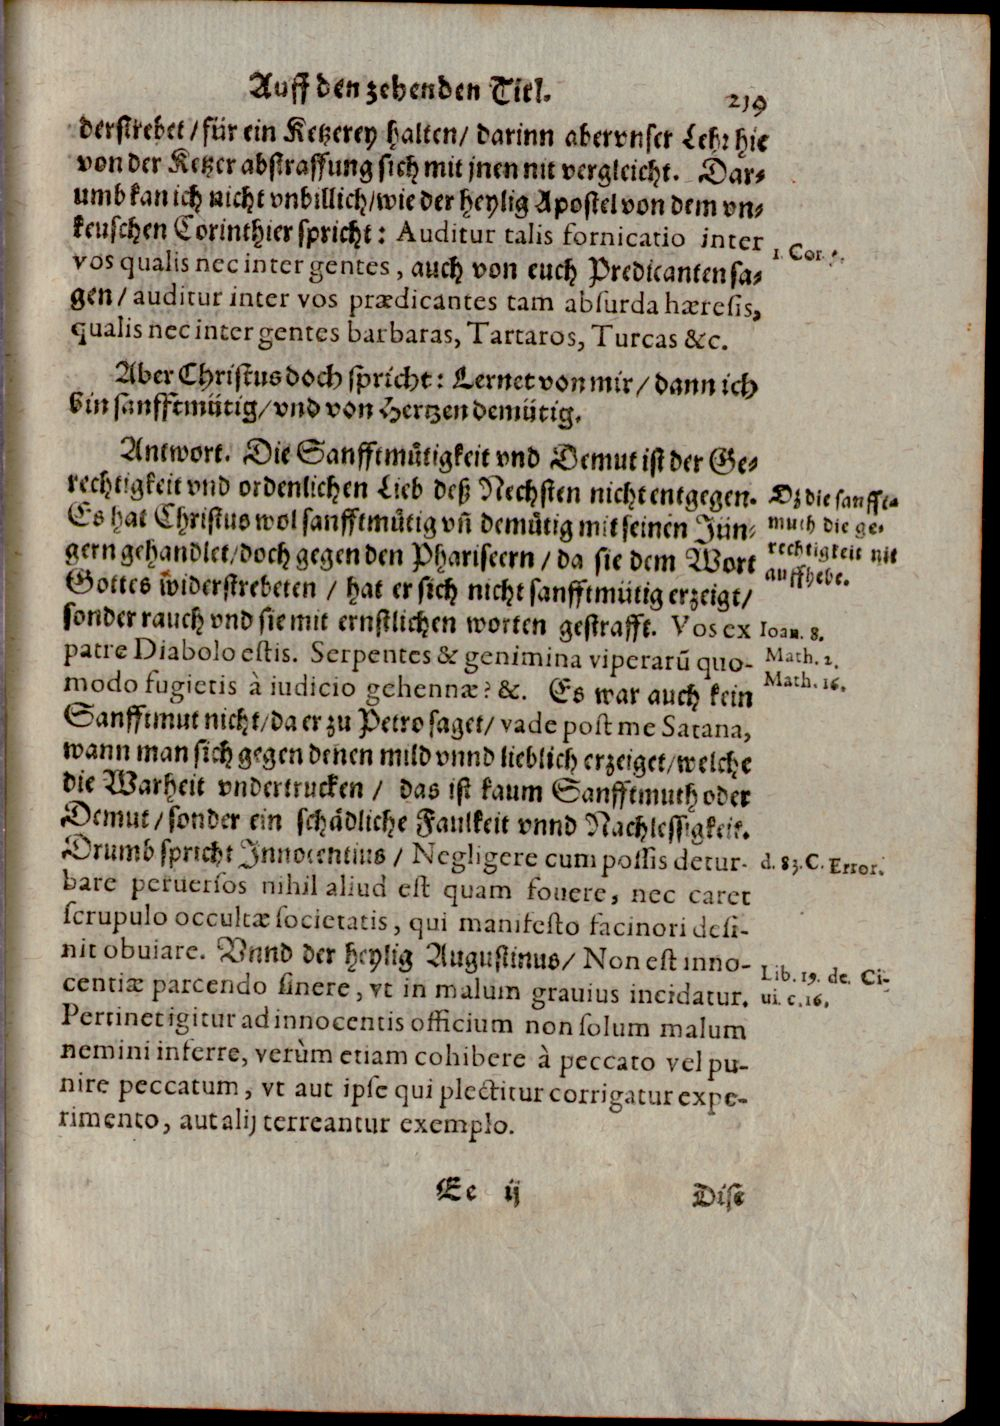 Auff den zehenden Titl.
219
derstrebet / für ein Ketzerey halten / darinn aber vnser Lehr hie
von der Ketzer abstraffung sich mit jnen nit vergleicht. Dar-
umb kan ich nicht vnbillich / wie der heylig Apostel von dem vn-
keuschen Corinthier spricht: Auditur talis fornicatio inter
1. Cor.
vos qualis nec inter gentes, auch von euch Predicanten sa-
gen / auditur inter vos prædicantes tam absurda hæresis,
qualis nec inter gentes barbaras, Tartaros, Turcas &c.
Aber Christus doch spricht: Lernet von mir / dann ich
bin sanfftmütig / vnd von Hertzen demütig.
Antwort. Die Sanfftmütigkeit vnd Demut ist der Ge-
rechtigkeit vnd ordenlichen Lieb deß Nechsten nicht entgegen.
Dz die sanfft-
Es hat Christus wol sanfftmütig vn̄ demütig mit seinen Jün-
muth die ge-
gern gehandlet / doch gegen den Phariseern / da sie dem Wort
rechtigkeit nit
Gottes widerstrebeten / hat er sich nicht sanfftmütig erzeigt /
auffhebe.
sonder rauch vnd sie mit ernstlichen worten gestrafft. Vos ex
Ioan. 8.
patre Diabolo estis. Serpentes & genimina viperarū quo-
Math. 2.
modo fugietis à iudicio gehennæ? &. Es war auch kein
Math. 16.
Sanfftmut nicht / da er zu Petro saget / vade post me Satana,
wann man sich gegen denen mild vnnd lieblich erzeiget / welche
die Warheit vndertrucken / das ist kaum Sanfftmuth oder
Demut / sonder ein schädliche Faulkeit vnnd Nachlessigkeit.
Drumb spricht Innocentius / Negligere cum possis detur-
d. 83. C. Error.
bare peruersos nihil aliud est quam fouere, nec caret
scrupulo occultæ societatis, qui manifesto facinori desi-
nit obuiare. Vnnd der heylig Augustinus / Non est inno-
Lib. 19. de. Ci-
centiæ parcendo sinere, vt in malum grauius incidatur.
ui. c. 16.
Pertinet igitur ad innocentis officium non solum malum
nemini inferre, verùm etiam cohibere à peccato vel pu-
nire peccatum, vt aut ipse qui plectitur corrigatur expe-
rimento, aut alij terreantur exemplo.
Ee ij
Dise